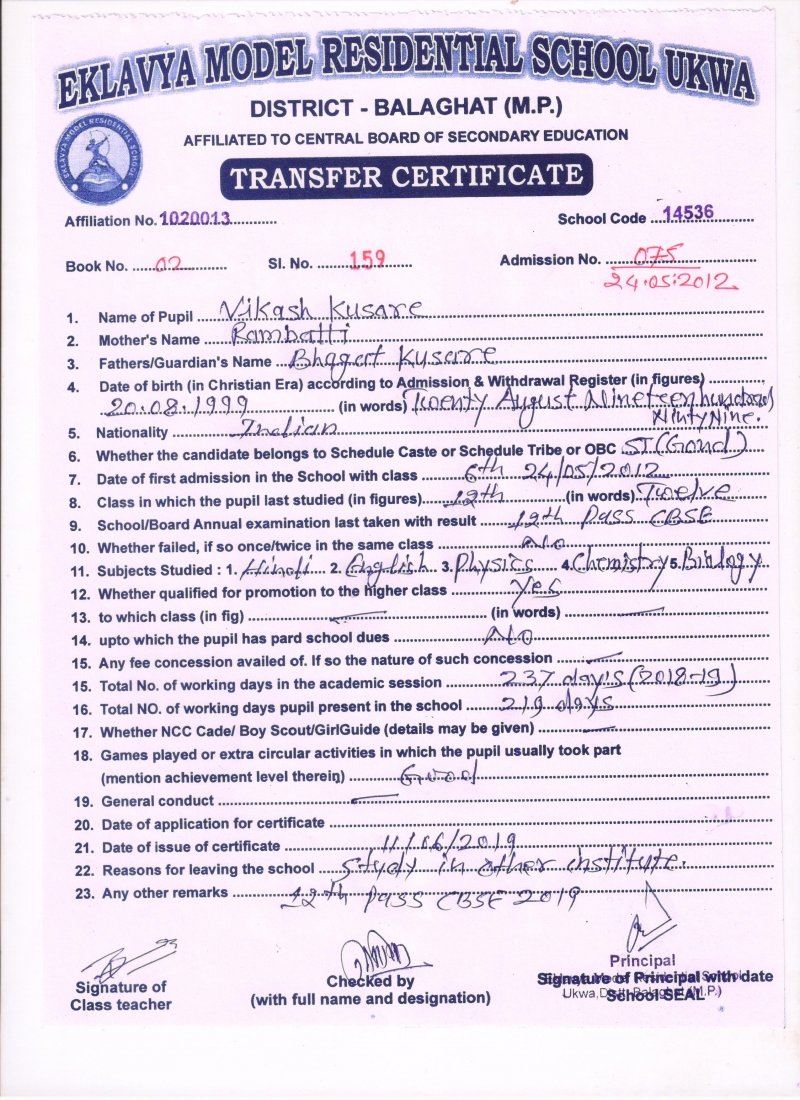 EKLAVYA MODEL RESIDENTIAL SCHOOL UKWA
DISTRICT - BALAGHAT (M.P.)
AFFILIATED TO CENTRAL BOARD OF SECONDARY EDUCATION
EKLAVYA MODEL RESIDENTIAL SCHOOL
TRANSFER CERTIFICATE
Affiliation No. 1020013 School Code 14536
Book No. 02 Sl. No. 159 Admission No. 075
24.05.2012
1. Name of Pupil Vikash Kusare
2. Mother's Name Rambatti
3. Fathers/Guardian's Name Bhagat Kusare
4. Date of birth (in Christian Era) according to Admission & Withdrawal Register (in figures)
20.08.1999 (in words) Twenty August Nineteen hundred
Ninty Nine.
5. Nationality Indian
6. Whether the candidate belongs to Schedule Caste or Schedule Tribe or OBC ST (Gond)
7. Date of first admission in the School with class 6th 24/05/2012
8. Class in which the pupil last studied (in figures) 12th (in words) Twelve
9. School/Board Annual examination last taken with result 12th Pass CBSE
10. Whether failed, if so once/twice in the same class No
11. Subjects Studied : 1. Hindi 2. English 3. Physics 4. Chemistry 5. Biology
12. Whether qualified for promotion to the higher class Yes
13. to which class (in fig) (in words)
14. upto which the pupil has pard school dues No
15. Any fee concession availed of. If so the nature of such concession
15. Total No. of working days in the academic session 237 day's (2018-19)
16. Total NO. of working days pupil present in the school 219 days
17. Whether NCC Cade/ Boy Scout/GirlGuide (details may be given)
18. Games played or extra circular activities in which the pupil usually took part
(mention achievement level therein) Good
19. General conduct
20. Date of application for certificate
21. Date of issue of certificate 11/06/2019
22. Reasons for leaving the school Study in other institute.
23. Any other remarks 12th Pass CBSE 2019
Signature of
Class teacher
Checked by
(with full name and designation)
Principal
Signature of Principal with date
Ukwa, Distt. Balaghat (M.P.)
School SEAL